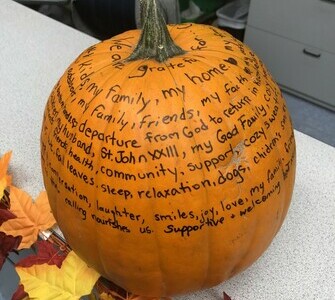 We are grateful
kids, my family, my home
my family, friends, my faith
departure from God to return
husband, St. John XXIII, my Good Family
health, community, support, cozy
fall leaves, sleep, relaxation, dogs, children's
laughter, smiles, joy, love, my family
calling nourishes us. supportive + welcoming